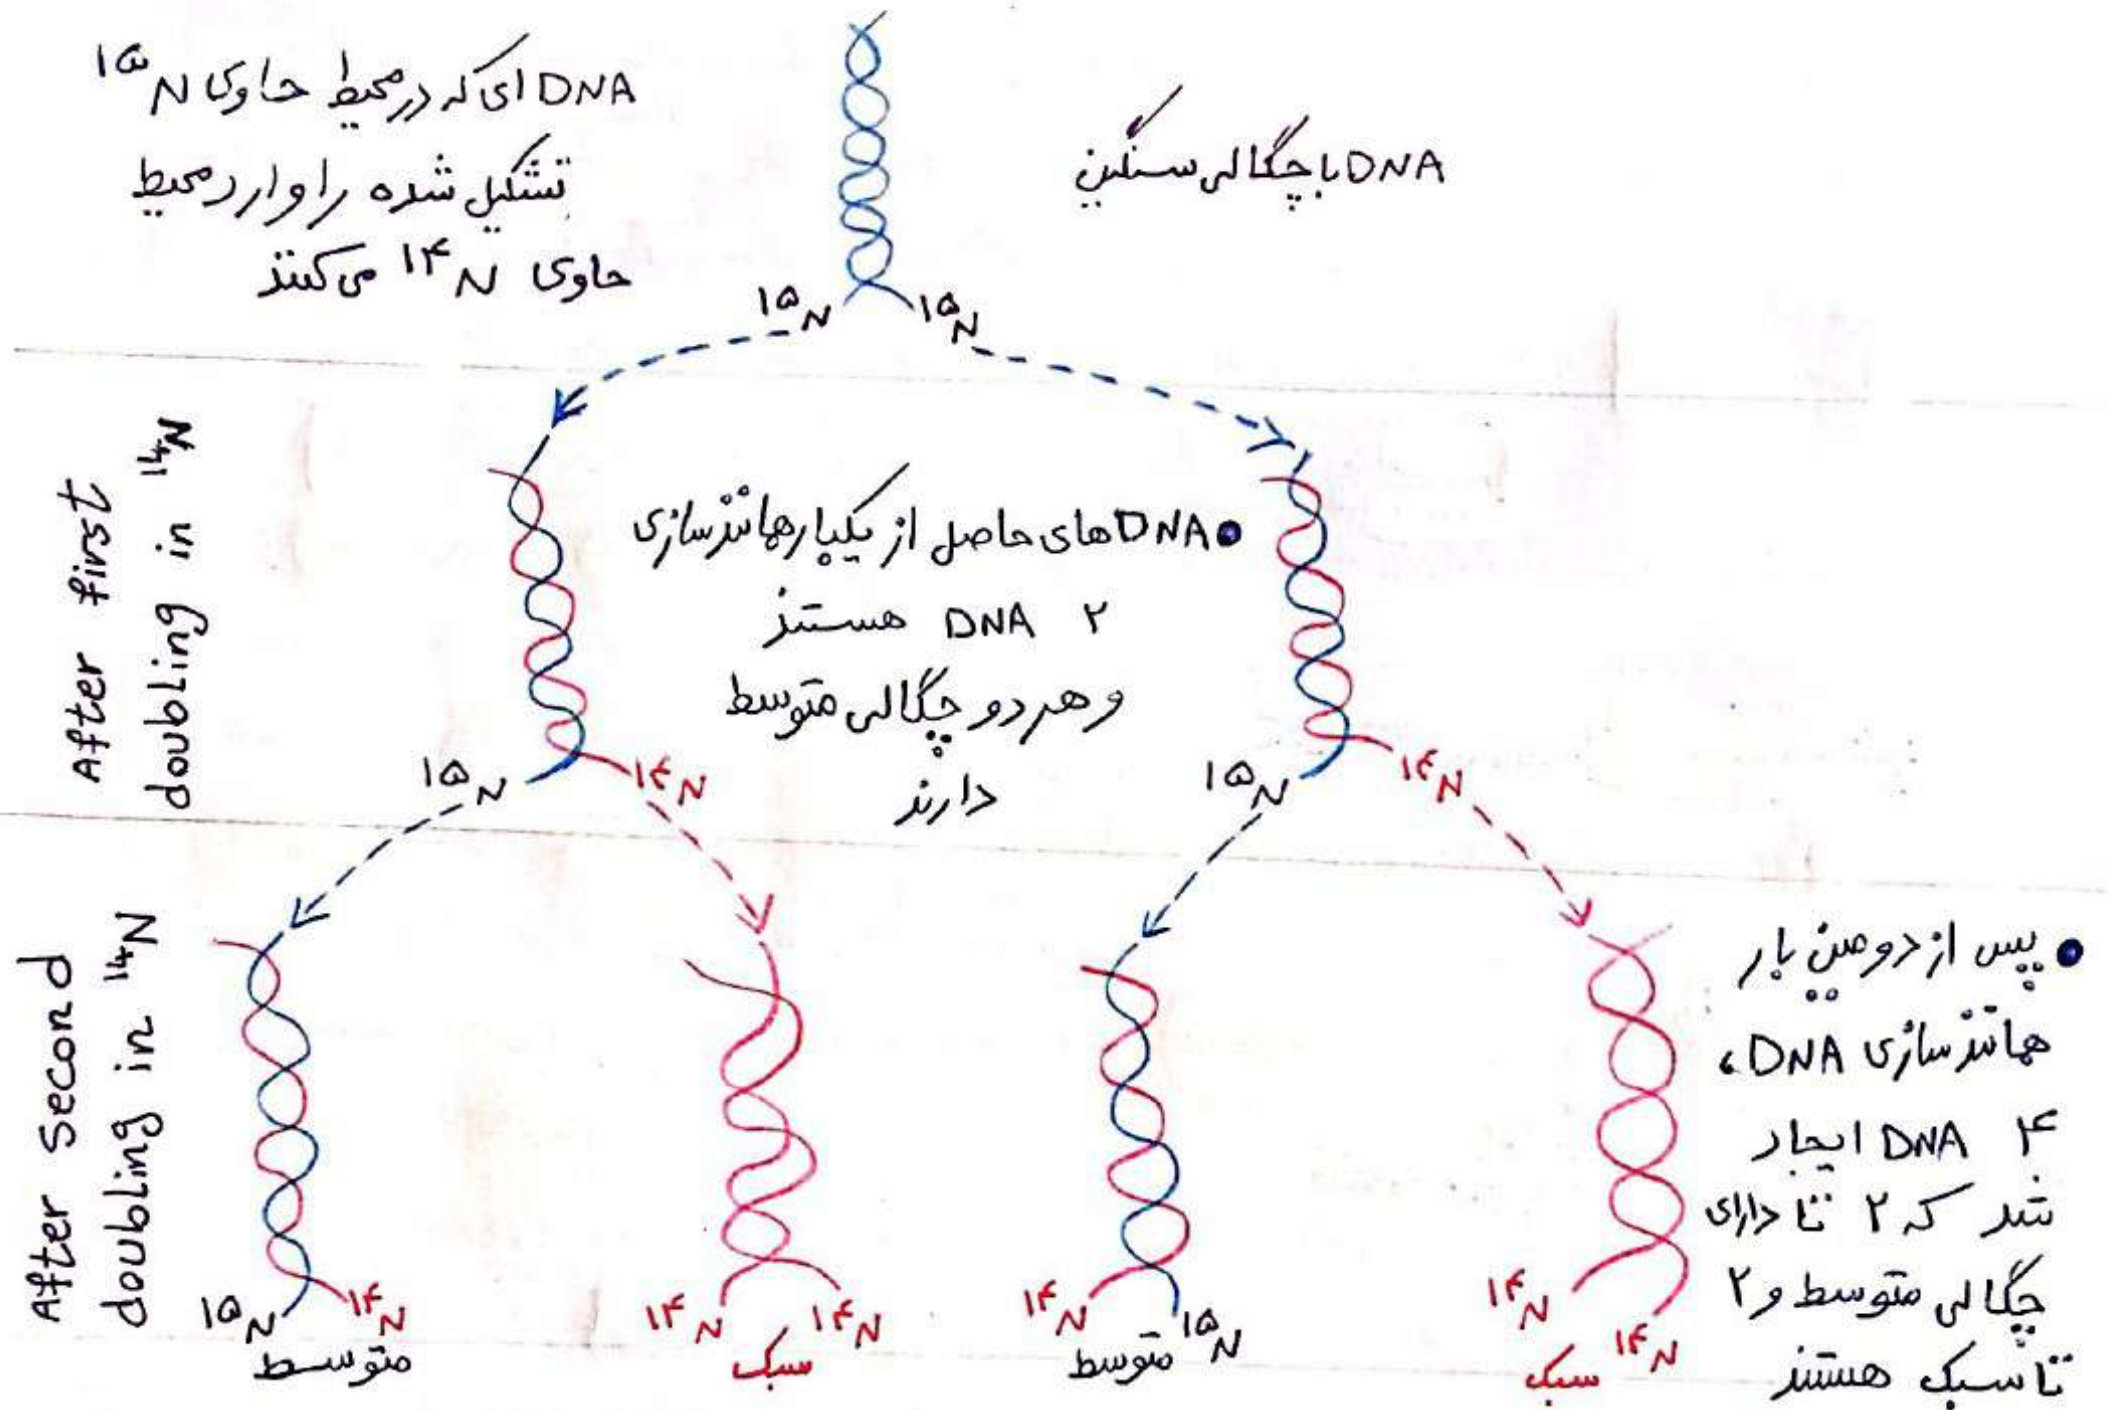 DNA ای که در محیط حاوی ۱۵N
تشکیل شده را وارد محیط
حاوی ۱۴N می‌کنند
DNA با چگالی سنگین
۱۵N
۱۵N
After first
doubling in 14N
• DNA های حاصل از یکبار همانندسازی
۲ DNA هستند
و هر دو چگالی متوسط
دارند
۱۵N
۱۴N
۱۵N
۱۴N
After second
doubling in 14N
• پس از دومین بار
همانندسازی DNA،
۴ DNA ایجاد
شد که ۲ تا دارای
چگالی متوسط و ۲
تا سبک هستند
۱۵N
۱۴N
متوسط
۱۴N
۱۴N
سبک
۱۴N
۱۵N
متوسط
۱۴N
۱۴N
سبک